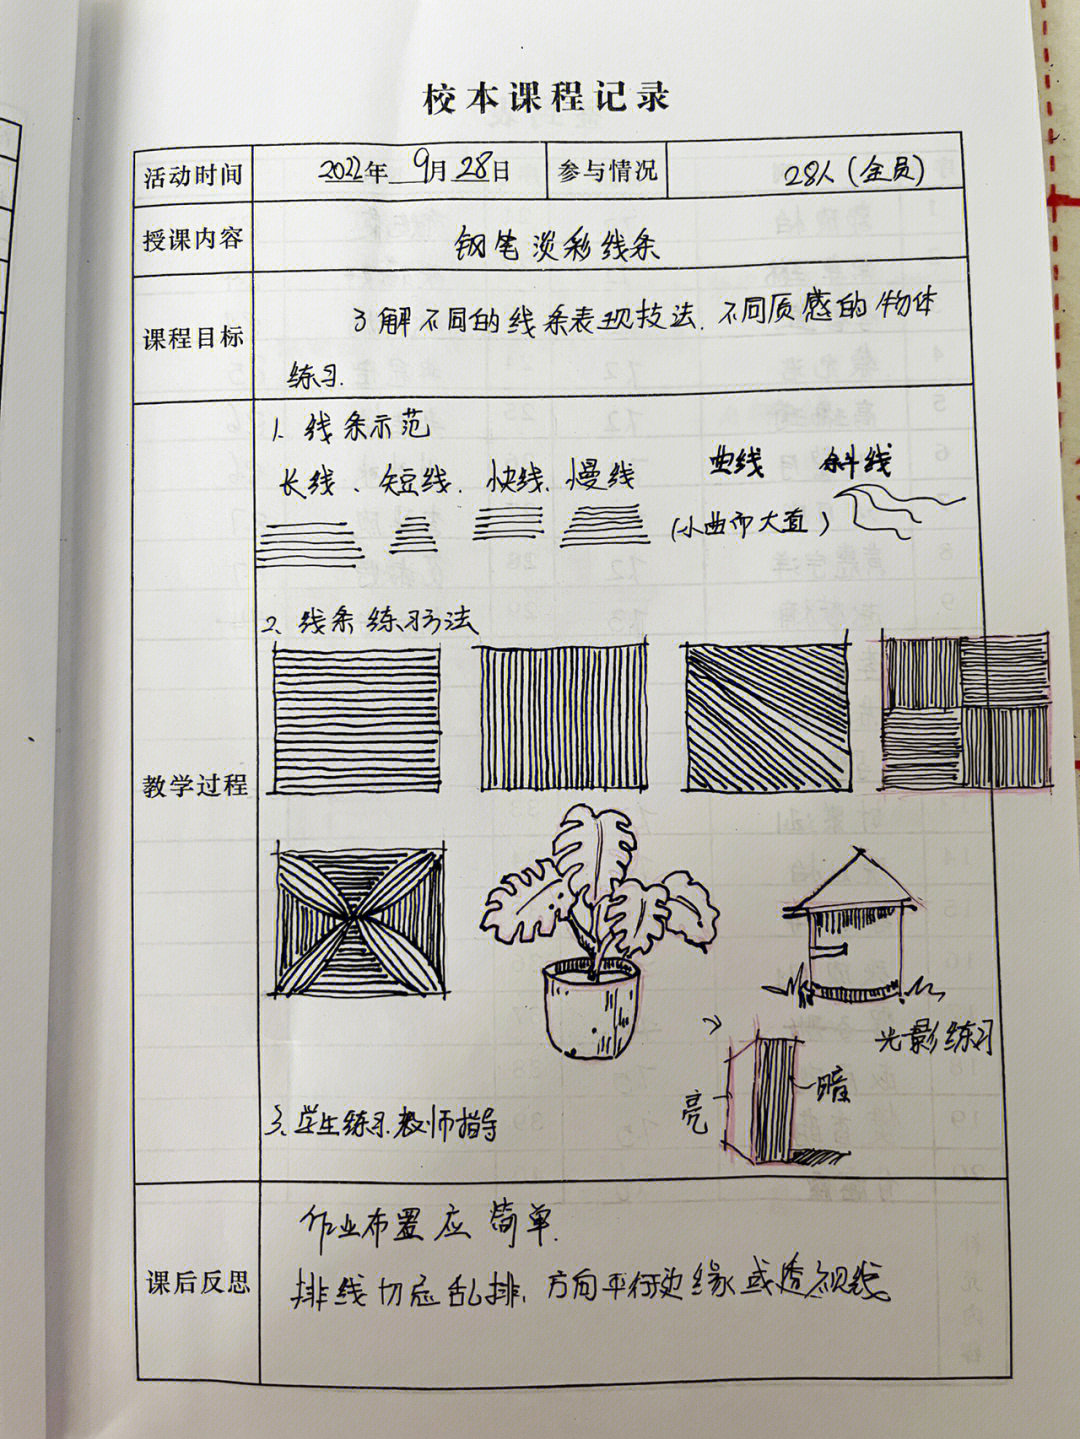 校本课程记录
活动时间 2022年 9月 28日 参与情况 28人(全员)
授课内容 钢笔淡彩线条
课程目标 了解不同的线条表现技法.不同质感的物体
练习.
教学过程
1、线条示范
长线、短线、快线、慢线 曲线 斜线
(小曲而大直)
2、线条练习方法
光影练习
亮 暗
3、学生练习.教师指导
课后反思
作业布置应简单.
排线切忌乱排,方向平行边缘或透视线。